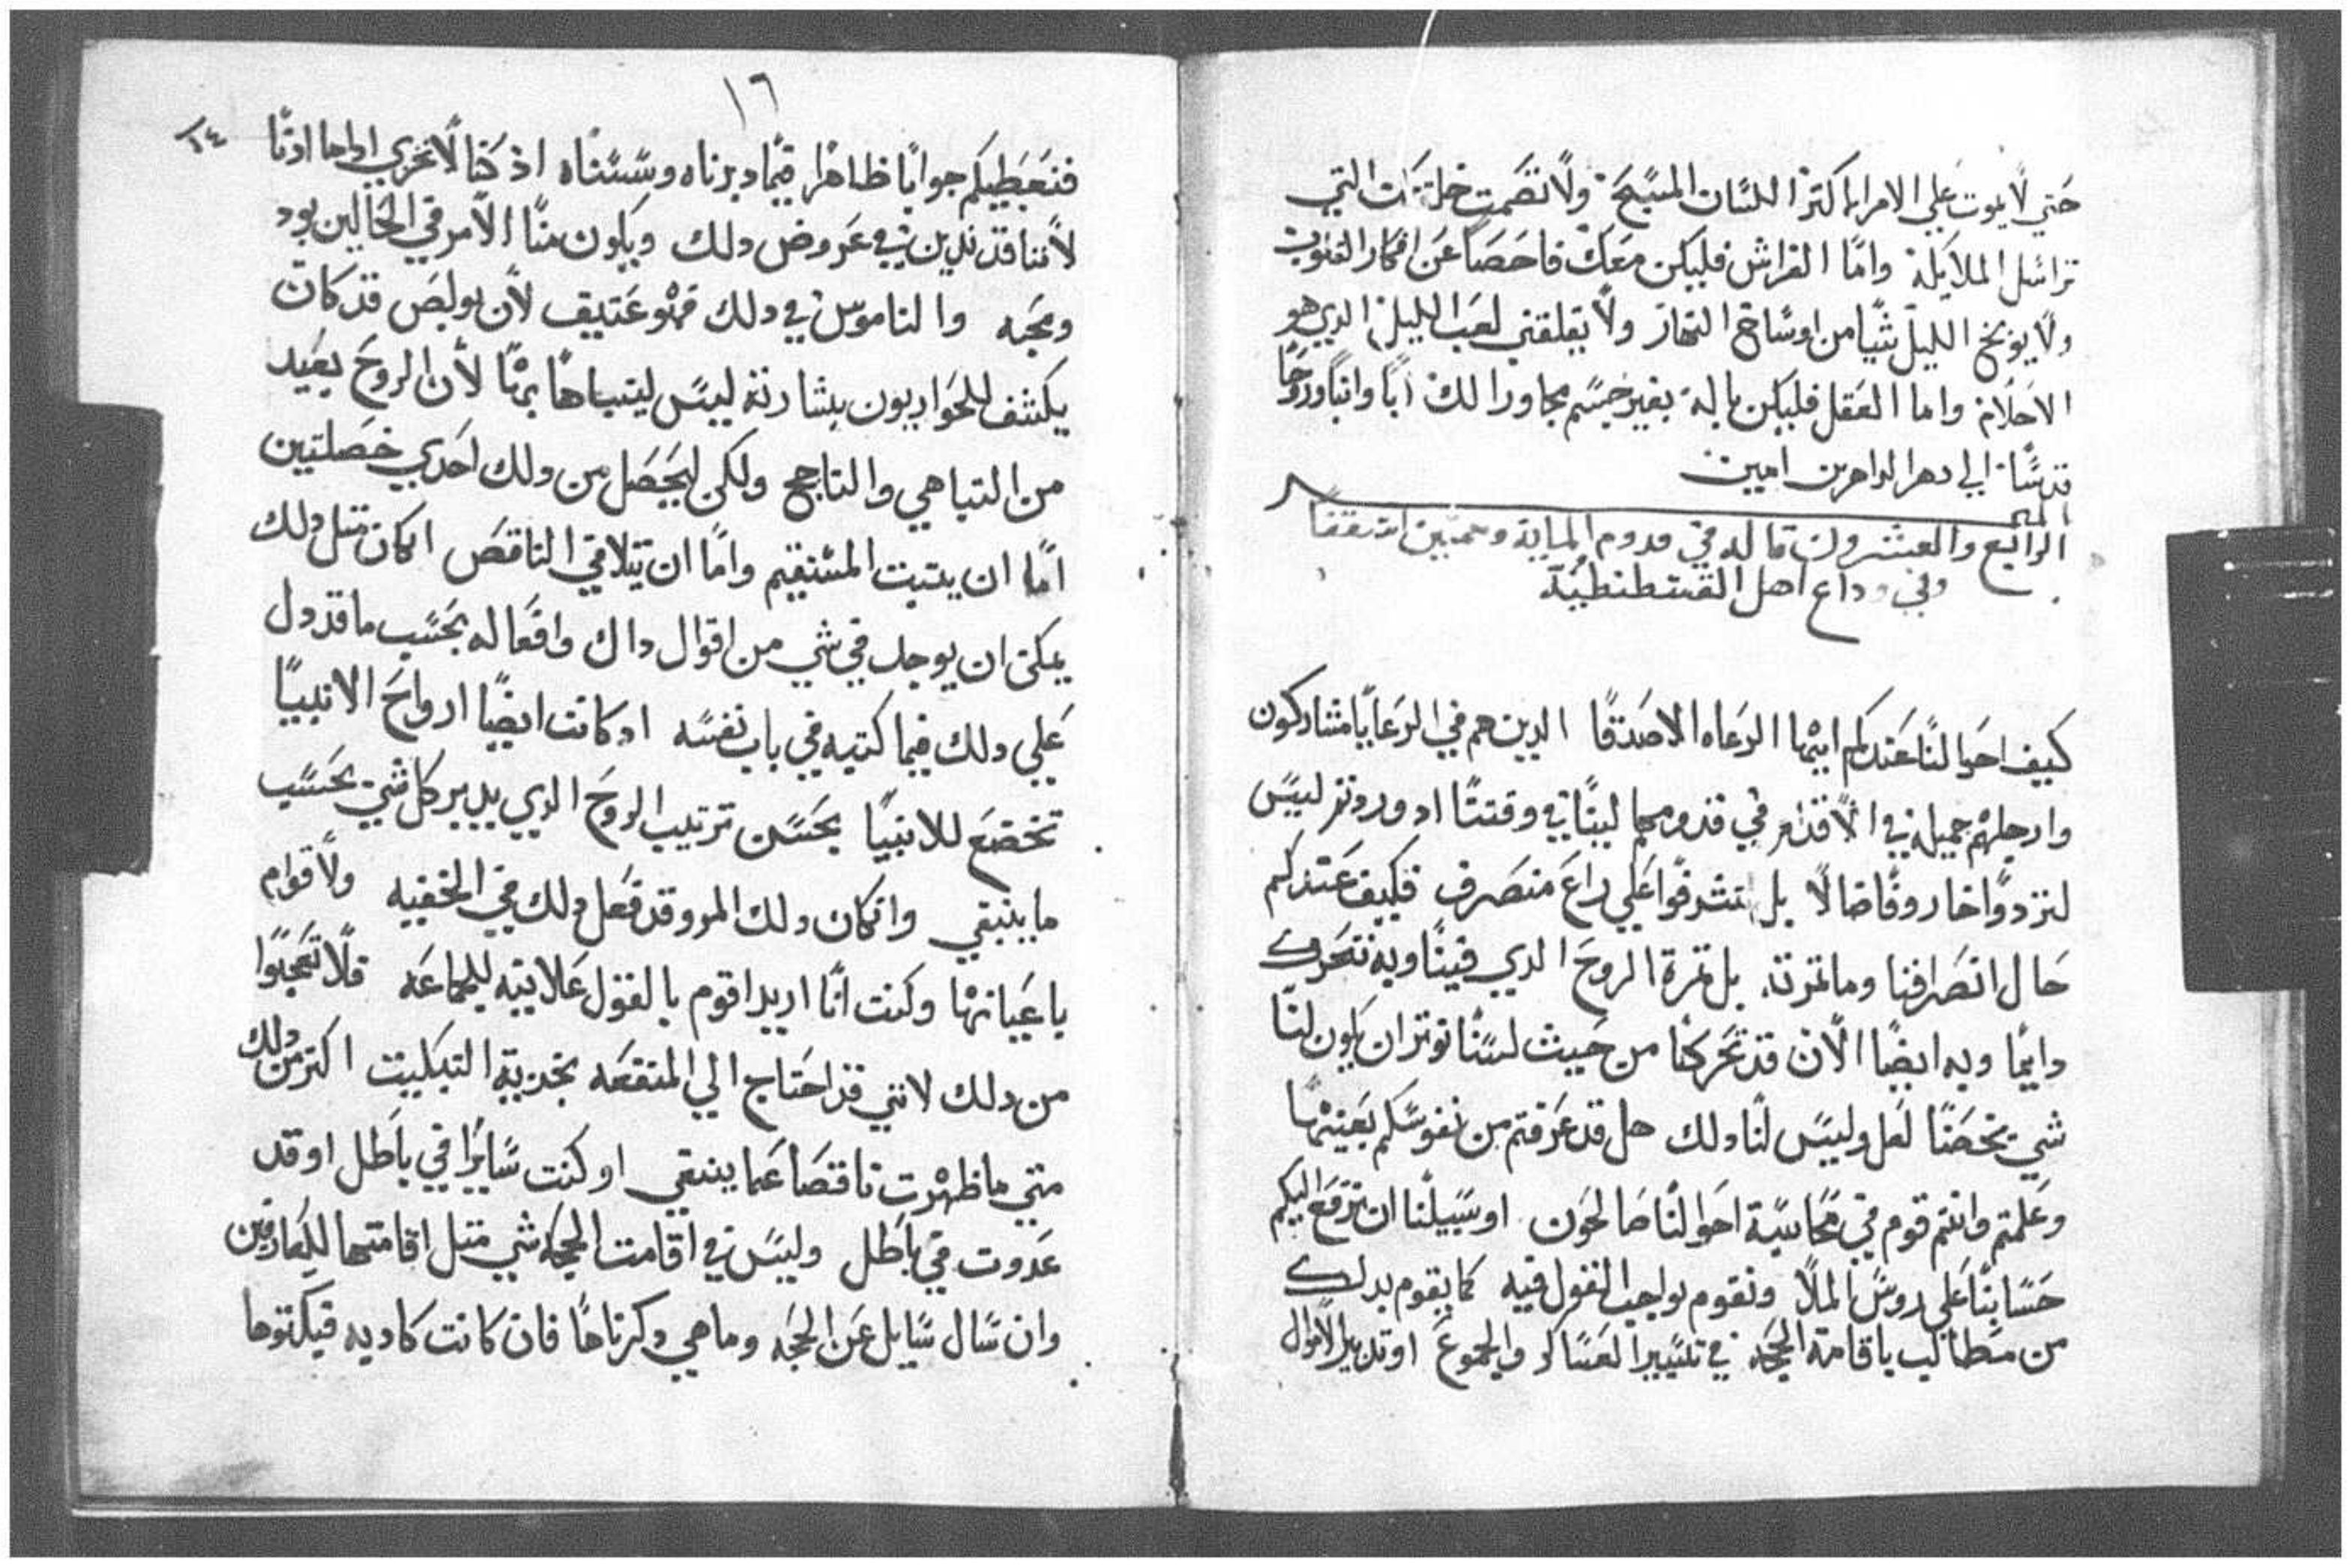 حتي لا يموت علي الامر ايما كثرا اللسان المسبحة ولا تصمت التي
تراسل الملايكة واما الفراش فليكن معك فاحصا عن افكار القنوت
ولا يوبخ الليل شيا من اوساخ النهار ولا يقلقني لعب الليل الدي هو
الاحلام واما العقل فليكن باله بغير جسم مجاورا لك ابا وابنا وروحا
قدسا الي دهر الداهرين امين
الميمر
الرابع والعشرون قاله في قدوم الماية وخمسين اسقفا
وفي وداع اهل القسطنطينية
كيف احوالنا عندكم ايها الرعاه الاصدقا الدين هم في الرعايا مشاركون
وارجلهم جميلة في الاقدام في قدومها الينا في وقتنا اد وردتم ليس
لتردوا خاروفا ضالا بل لتشرفوا علي راع منصرف فكيف عندكم
حال انصرافنا وما تمرته بل تمرة الروح الدي فينا وبه نتحرك
دايما وبه ايضا الان قد تحركنا من حيث لسنا نوتر ان يكون لنا
شي يخصنا لعل وليس لنا دلك هل قد عرفتم من نفوسكم بعينها
وعلمتم وانتم قوم في محاسبة احوالنا صالحون او سبيلنا ان نرفع اليكم
حسابنا علي روس الملا ونقوم بواجب القول فيه كما يقوم بدلك
من مطالب باقامة الحجه في تسيير العساكر والجموع او تدبير الاموال
١٦
١٤
فنعطيكم جوابا ظاهرا فيما دبرناه وسسناه اذ كنا لا نخزي ادا ما ادنا
لاننا قد ندين في عروض دلك ويكون منا الامر في الحالين بود
ومحبه والناموس في دلك فهو عتيق لان بولص قد كان
يكشف للحواريون بشارته ليس ليتباها بها لان الروح بعيد
من التباهي والتاجج ولكن ليحصل من دلك احدي خصلتين
اما ان يتبت المستقيم واما ان يتلافي الناقص ان كان متل دلك
يمكن ان يوجد في شي من اقوال داك وافعاله بحسب ما قد دل
علي دلك فيما كتبه في باب نفسه اد كانت ايضا ارواح الانبيا
تخضع للانبيا بحسن ترتيب الروح الدي يدبر كل شي بحسب
ما ينبغي وان كان دلك المرو قد فعل دلك في الخفيه ولاقوام
باعيانها وكنت انا اريد اقوم بالقول علانيه للجماعه فلا تعجبوا
من دلك لانني قد احتاج الي المنفعه بخزية التبكيت اكتر من دلك
متي ما ظهرت ناقصا عما ينبغي او كنت سايرا في باطل او قد
عدوت في باطل وليس في اقامت الحجه شي متل اقامتها للعارفين
وان سال سايل عن الحجه وما هي دكرناها فان كانت كاديه فيكتوها